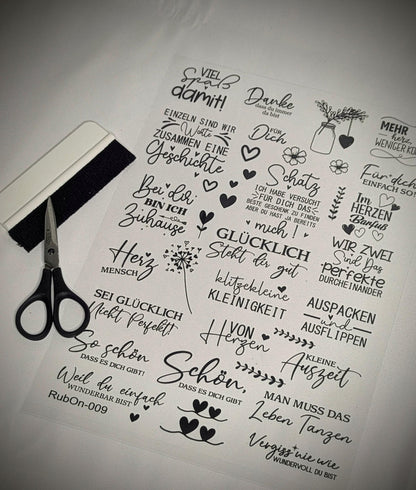 VIEL
Spaß
damit!
Danke
dass du immer
da bist
MEHR
herz,
WENIGER KO
EINZELN SIND WIR
Worte
ZUSAMMEN EINE
Geschichte
FÜR
Dich
Schatz
ICH HABE VERSUCHT
FÜR DICH DAS
BESTE GESCHENK ZU FINDEN
ABER DU HAST JA BEREITS
mich!
Für dich
EINFACH SO
Im
HERZEN
Barfuß
Bei dir
BIN ICH
Zuhause
WIR ZWEI
Sind Das
perfekte
DURCHEINANDER
GLÜCKLICH
Steht dir gut
Herz
MENSCH
klitzekleine
KLEINIGKEIT
AUSPACKEN
und
AUSFLIPPEN
SEI GLÜCKLICH
Nicht Perfekt!
VON
Herzen
KLEINE
Auszeit
So schön
DASS ES DICH GIBT!
Schön,
DASS ES DICH GIBT
MAN MUSS DAS
Leben Tanzen
Weil du einfach
WUNDERBAR BIST
RubOn-009
Vergiss nie wie
WUNDERVOLL DU BIST